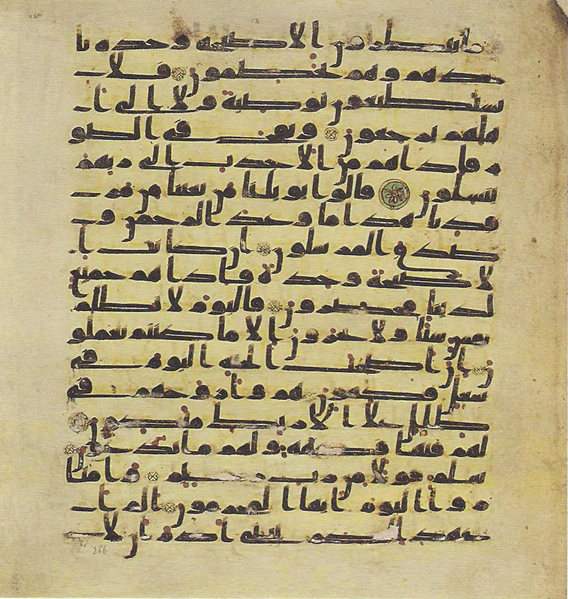 ما ينظرون الا صيحة وحدة تا
خذهم وهم يخصمون فلا
يستطيعون توصية ولا الى ا
هلهم يرجعون ونفخ في الصو
ر فاذا هم من الاجدث الى ربهم
ينسلون قالوا يويلنا من بعثنا من مر
قدنا هذا ما وعد الرحمن و
صدق المرسلون ان كانت ا
لا صيحة وحدة فاذا هم جميع
لدينا محضرون فاليوم لا تظلم
نفس شيا ولا تجزون الا ما كنتم تعملو
ن ان اصحب الجنة اليوم في
شغل فكهون هم وازوجهم في
ظلل على الارائك متكون
لهم فيها فكهة ولهم ما يدعون
سلم قولا من رب رحيم وامتا
زوا اليوم ايها المجرمون الم ا
عهد اليكم يبني ادم ان لا